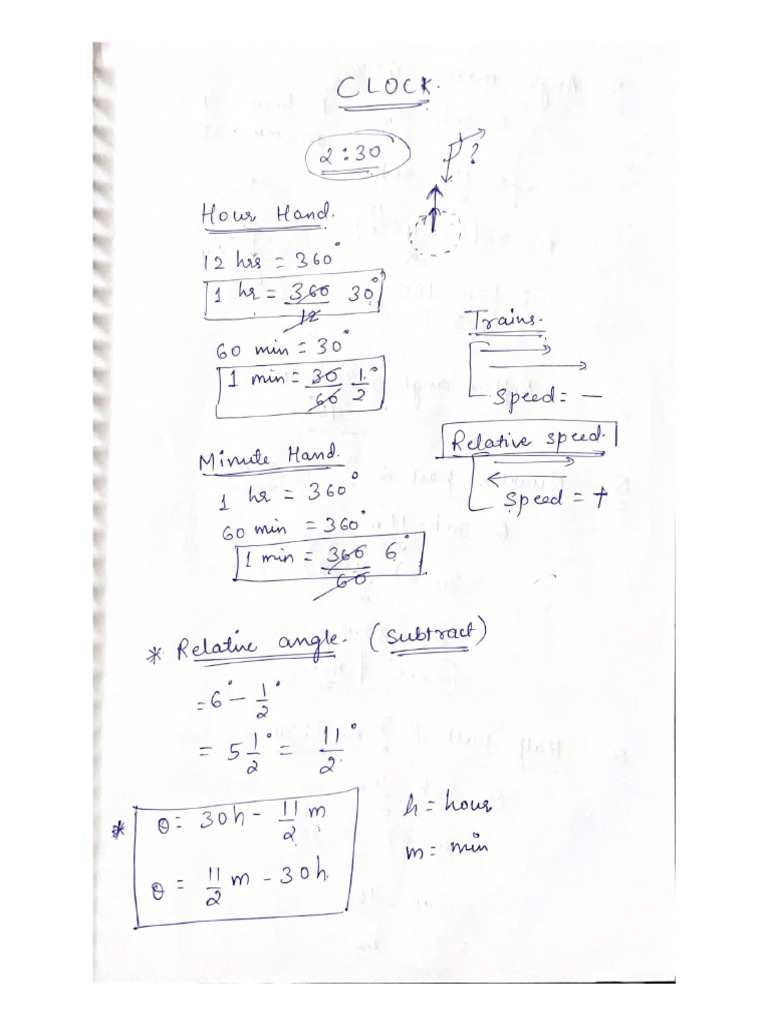 CLOCK.
2:30
?
Hour Hand.
12 hrs = 360°
1 hr = 360/12 30°
60 min = 30°
1 min = 30/60 1/2°
Trains.
Speed = −
Relative speed.
Speed = +
Minute Hand.
1 hr = 360°
60 min = 360°
1 min = 360/60 6°
* Relative angle. (Subtract)
= 6° − 1/2°
= 5 1/2° = 11/2°
* θ = 30h − 11/2 m
θ = 11/2 m − 30h
h = hour
m = min